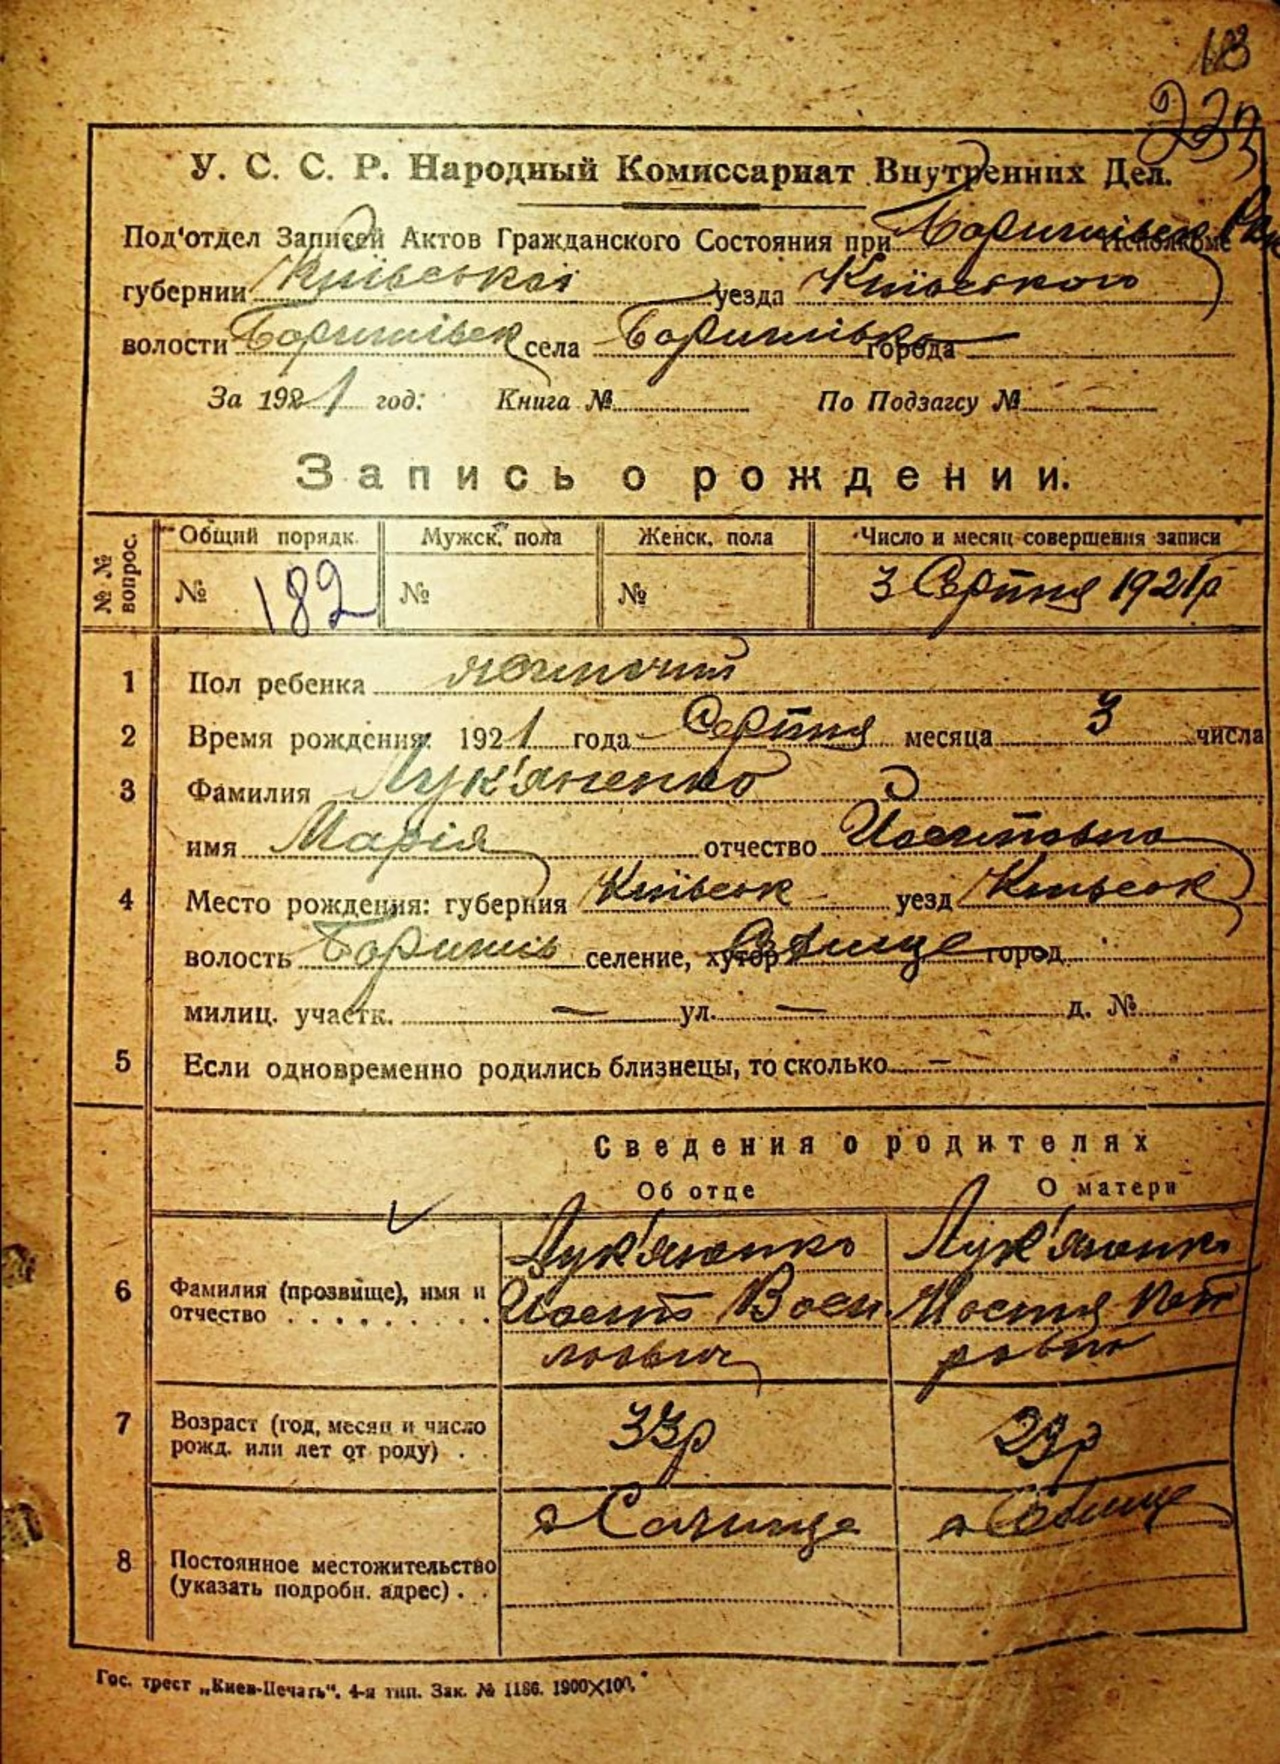 183
233
У. С. С. Р. Народный Комиссариат Внутренних Дел.
Под'отдел Записей Актов Гражданского Состояния при Исполкоме
губернии Київської уезда Київського
волости села города —
За 1921 год: Книга № По Подзагсу № —
Запись о рождении.
№ № вопрос. Общий порядк. Мужск. пола Женск. пола Число и месяц совершения записи
№ 182 № № 3 Серпня 1921р
1 Пол ребенка жіночий
2 Время рождения: 1921 года Серпня месяца 3 числа
3 Фамилия Лук'яненко
имя Марія отчество
4 Место рождения: губерния Київськ уезд Київськ
волость селение, хутор город
милиц. участк. — ул. — д. №
5 Если одновременно родились близнецы, то сколько —
Сведения о родителях
Об отце О матери
6 Фамилия (прозвище), имя и отчество Лук'яненко Лук'яненко
7 Возраст (год, месяц и число рожд. или лет от роду) 33р 29р
8 Постоянное местожительство (указать подробн. адрес)
Гос. трест „Киев-Печать“. 4-я тип. Зак. № 1186. 1900×100.